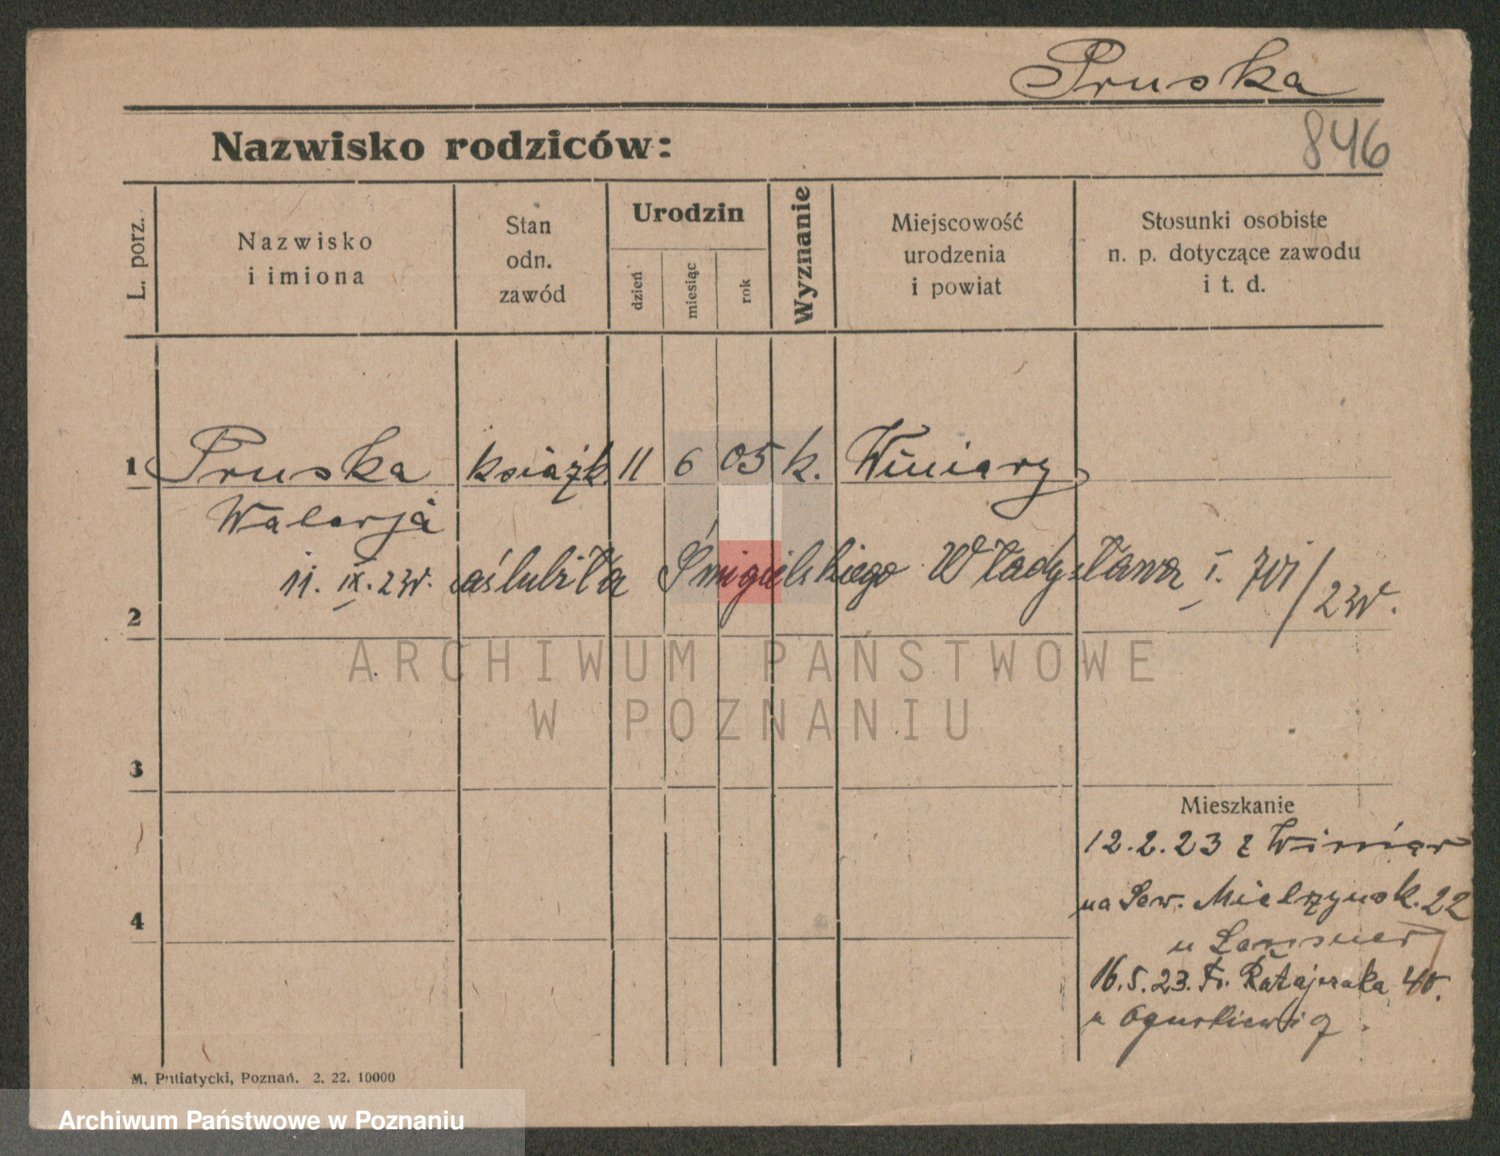 Pruska
Nazwisko rodziców:
846
L. porz.
Nazwisko
i imiona
Stan
odn.
zawód
Urodzin
dzień
miesiąc
rok
Wyznanie
Miejscowość
urodzenia
i powiat
Stosunki osobiste
n. p. dotyczące zawodu
i t. d.
1 Pruska książk. 11 6 05 k. Winiary
Walerja
11. IX. 23r. zaślubiła Śmigielskiego Władysława I. 701/23r.
2
ARCHIWUM PAŃSTWOWE
W POZNANIU
3
Mieszkanie
12.2.23 z Winiar
4
na Sew. Mielżyńsk. 22
u
16.5.23. Fr. Ratajczaka 40.
u
M. Putiatycki, Poznań. 2. 22. 10000
Archiwum Państwowe w Poznaniu